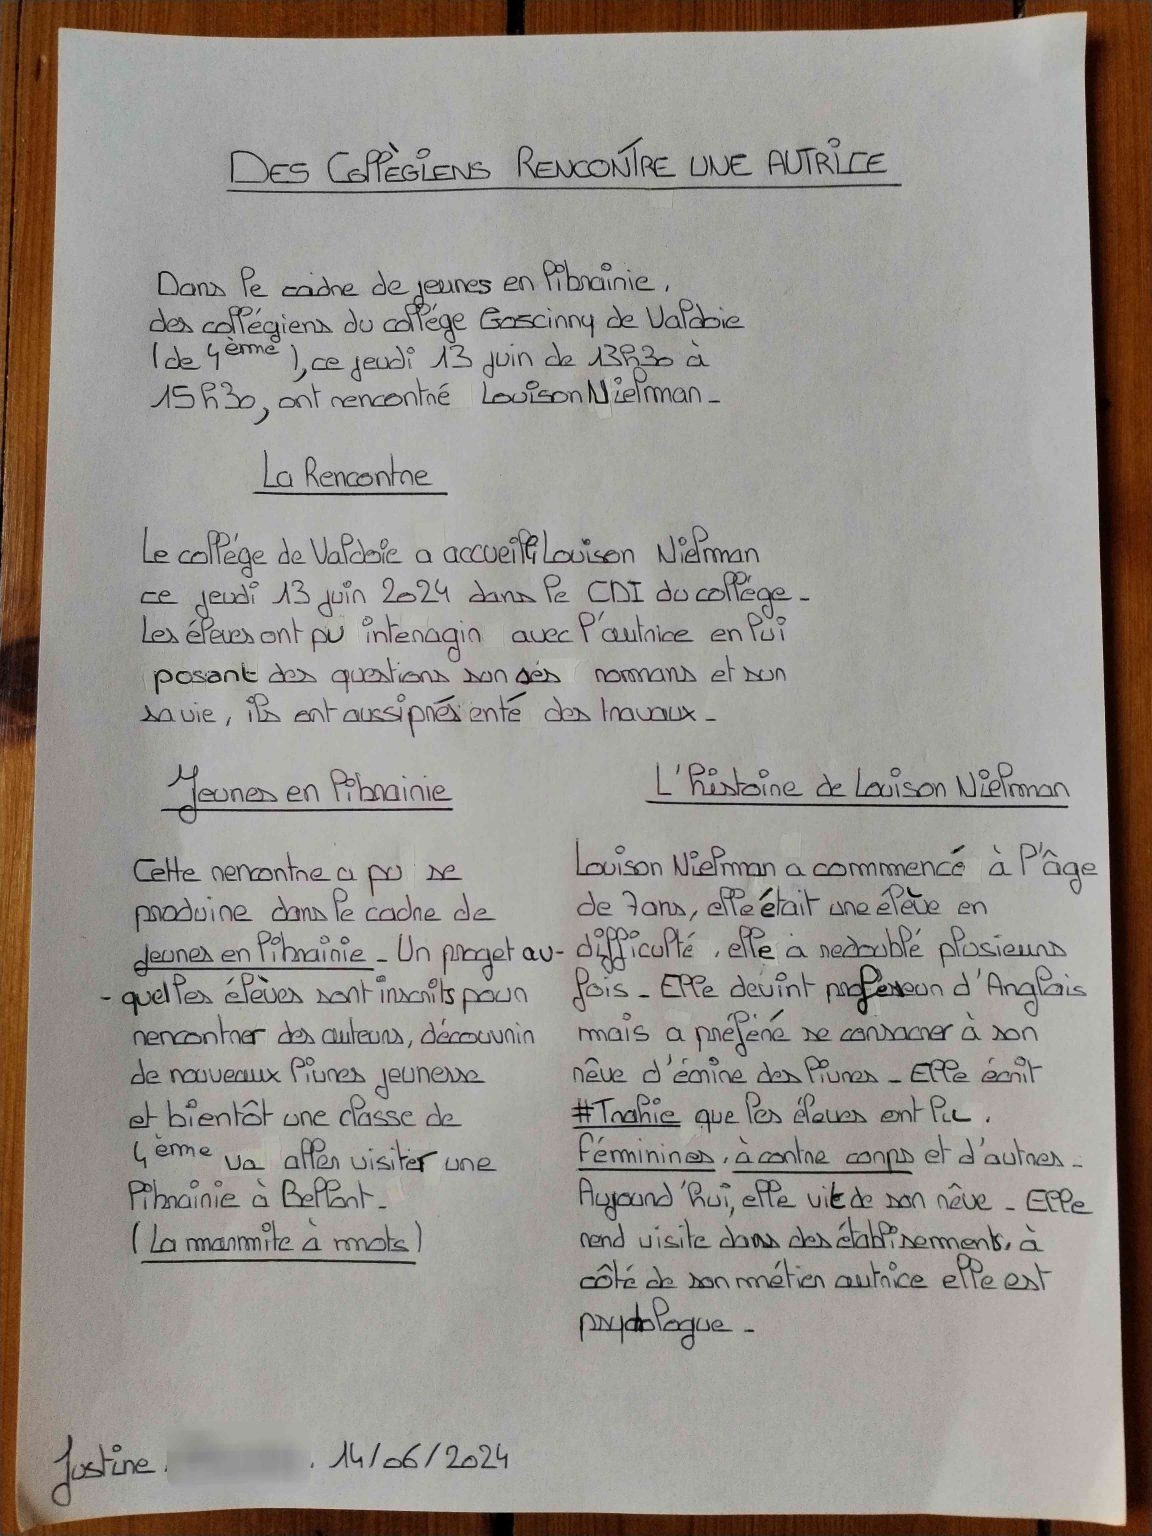 DES COLLÈGIENS RENCONTRE UNE AUTRICE
Dans le cadre de jeunes en librairie,
des collégiens du collége Goscinny de Valdoie
(de 4ème), ce jeudi 13 juin de 13h30 à
15h30, ont rencontré Louison Nielman_
La Rencontre
Le collége de Valdoie a accueilli Louison Nielman
ce jeudi 13 juin 2024 dans le CDI du collége_
Les éleves ont pu interagir avec l'autrice en lui
posant des questions sur ses romans et sur
sa vie, ils ont aussi présenté des travaux_
Jeunes en librairie
Cette rencontre a pu se
produire dans le cadre de
jeunes en librairie_ Un projet au-
-quel les élèves sont inscrits pour
rencontrer des auteurs, découvrir
de nouveaux livres jeunesse
et bientôt une classe de
4ème va aller visiter une
librairie à Belfort_
(La marmite à mots)
L'histoire de Louison Nielman
Louison Nielman a commencé à l'âge
de 7ans, elle était une élève en
difficulté, elle à redoublé plusieurs
fois_ Elle devint professeur d'Anglais
mais a préféré se consacrer à son
rêve d'écrire des livres_ Elle écrit
#Trahie que les éleves ont lu,
Fémininines, à contre corps et d'autres_
Aujourd'hui, elle vit de son rêve_ Elle
rend visite dans des établissements, à
côté de son métier autrice elle est
psychologue_
Justine . 14/06/2024